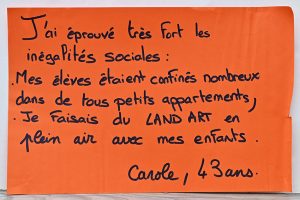 J'ai éprouvé très fort les
inégalités sociales :
. Mes élèves étaient confinés nombreux
dans de tous petits appartements,
. Je faisais du LAND ART en
plein air avec mes enfants.
Carole, 43 ans.